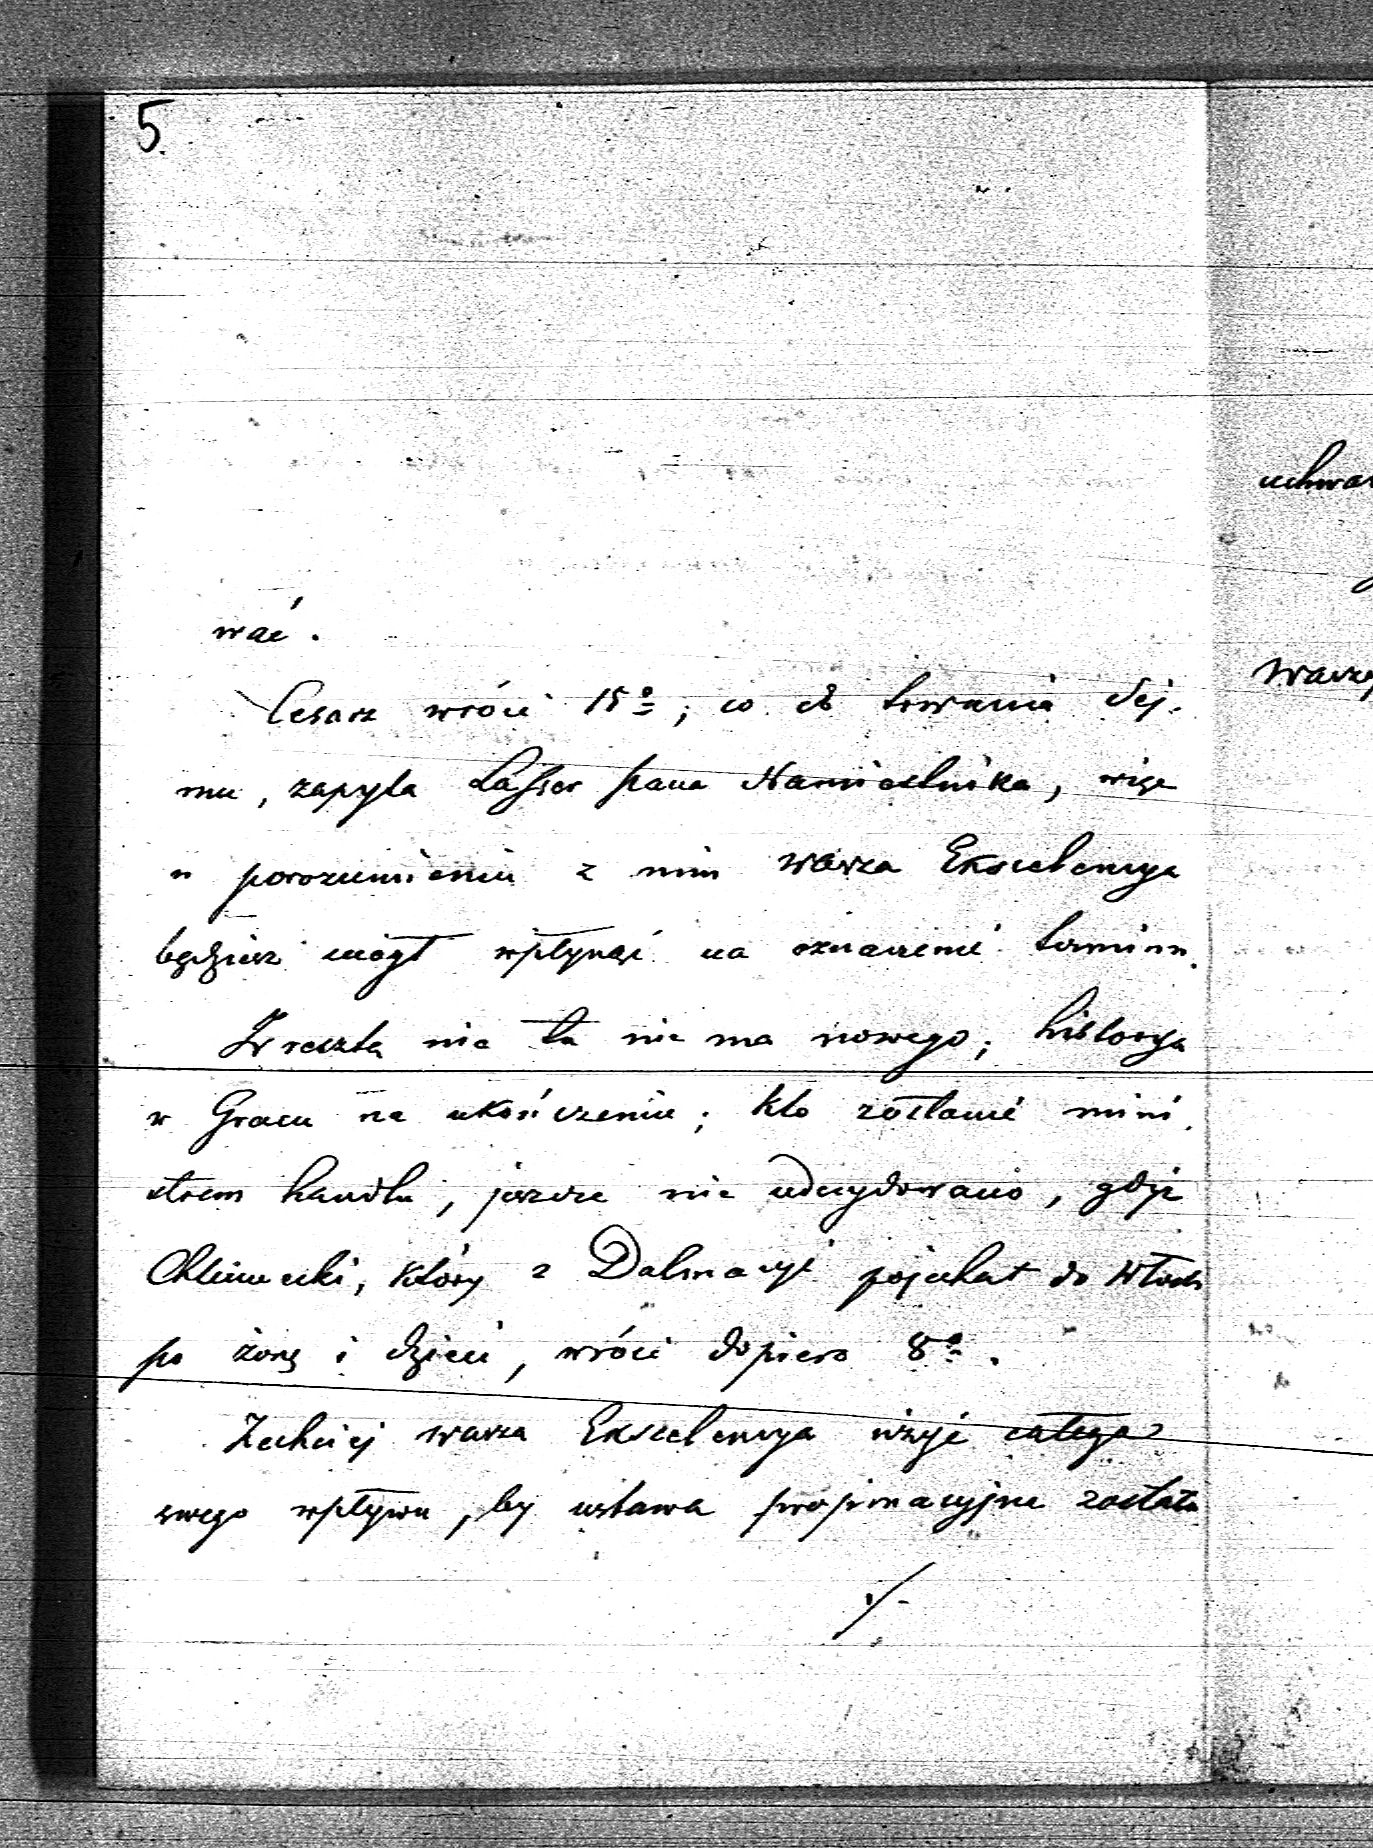 5.
wać.
Cesarz wróci 15º; co do trwania Sej-
mu, zapyta Lasser pana Namiestnika, więc
w porozumieniu z nim Wasza Ekscelencya
będziesz mógł wpłynąć na oznaczenie terminu.
Zresztą nic tu nie ma nowego; historya
w Gracu na ukończeniu; kto zostanie mini-
strem handlu, jeszcze nie udecydowano, gdyż
Chlumecki, który z Dalmacyi pojechał do Włoch
po żonę i dzieci, wróci dopiero 8º.
Zechciej Wasza Ekscelencya użyć całego
swego wpływu, by ustawa propinacyjna została
./.
uchwa
Waszej